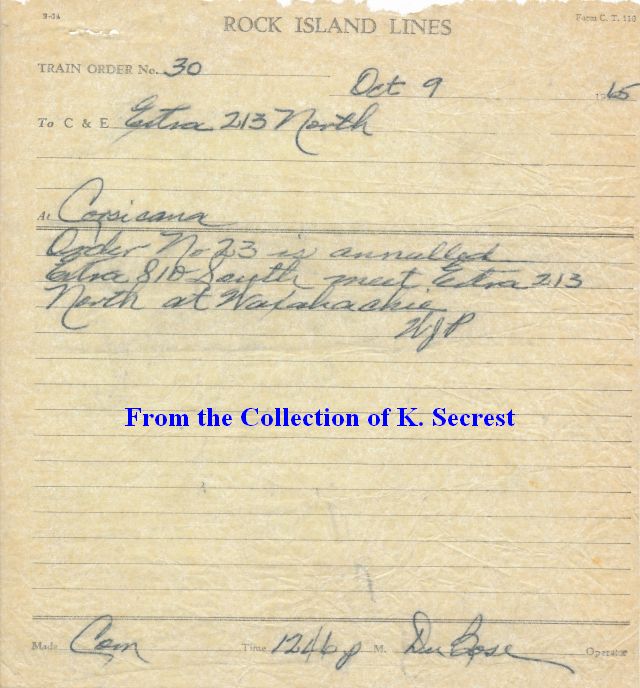 R-3A
Form C. T. 110
ROCK ISLAND LINES
TRAIN ORDER No. 30
Oct 9 1965
To C & E Extra 213 North
At Corsicana
Order No 23 is annulled
Extra 810 South meet Extra 213
North at Waxahachie
WJP
From the Collection of K. Secrest
Made Com Time 1246 p M. DuBose Operator